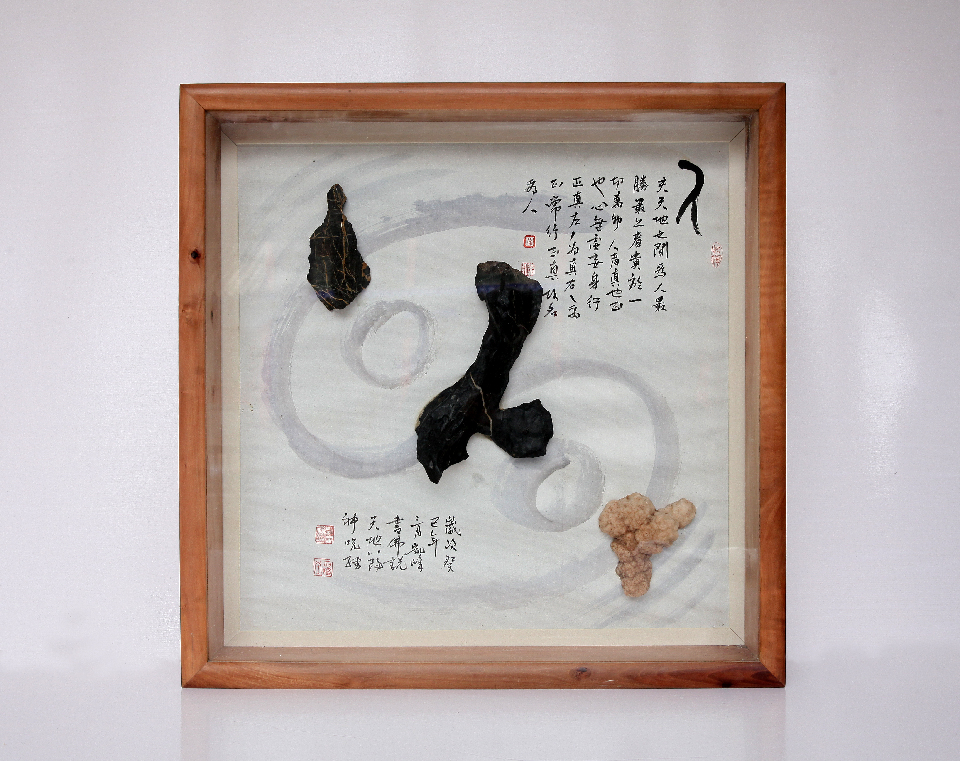 人
夫天地之間為人最
勝最上者貴於一
切萬物人者真也正
也心無虛妄身行
正真左丿為真右乀為
正常行正真故名
為人
歲次癸
巳年
峰
書佛說
天地八陽
神咒經